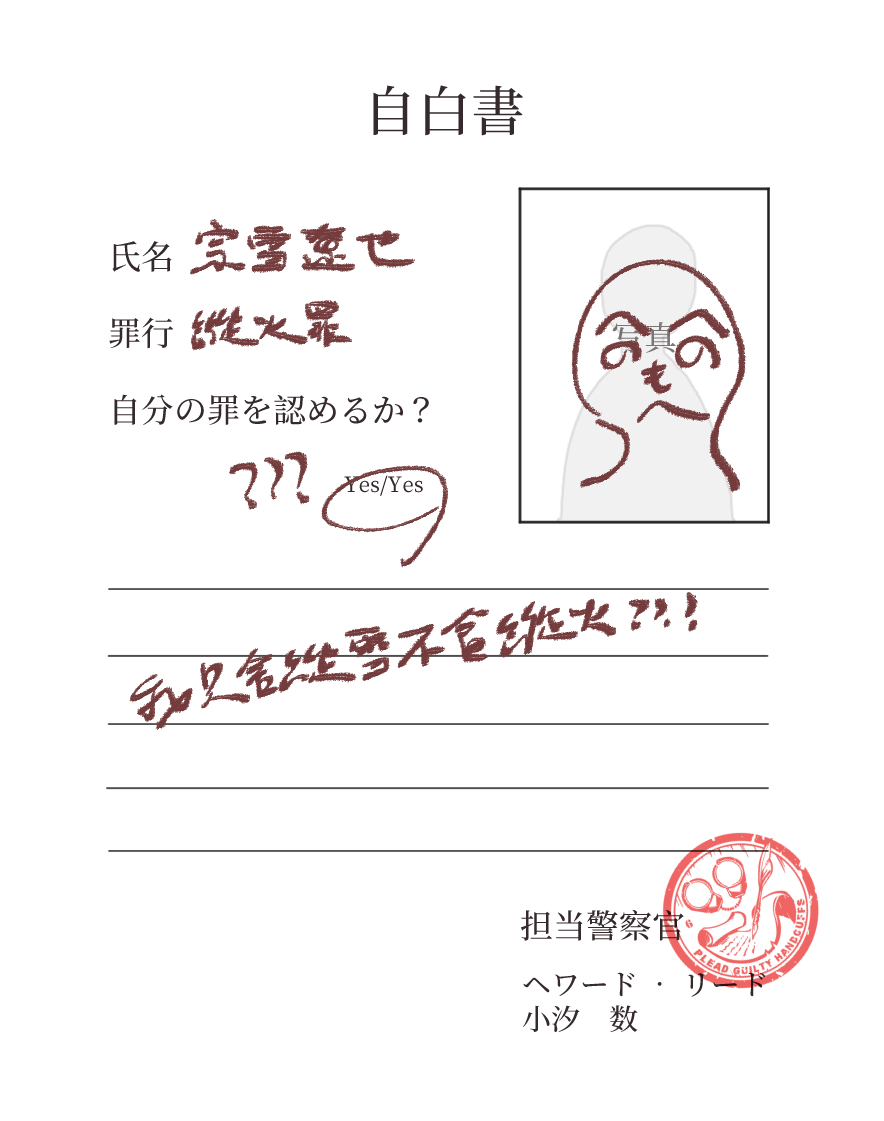 自白書
氏名 宗雪遼也
罪行 縱火罪
写真
へ へ
の の
も
へ
自分の罪を認めるか？
??? Yes/Yes
我只會縱雪不會縱火???!
担当警察官
ヘワード ・ リード
小汐 数
6 PLEAD GUILTY HANDCUFFS